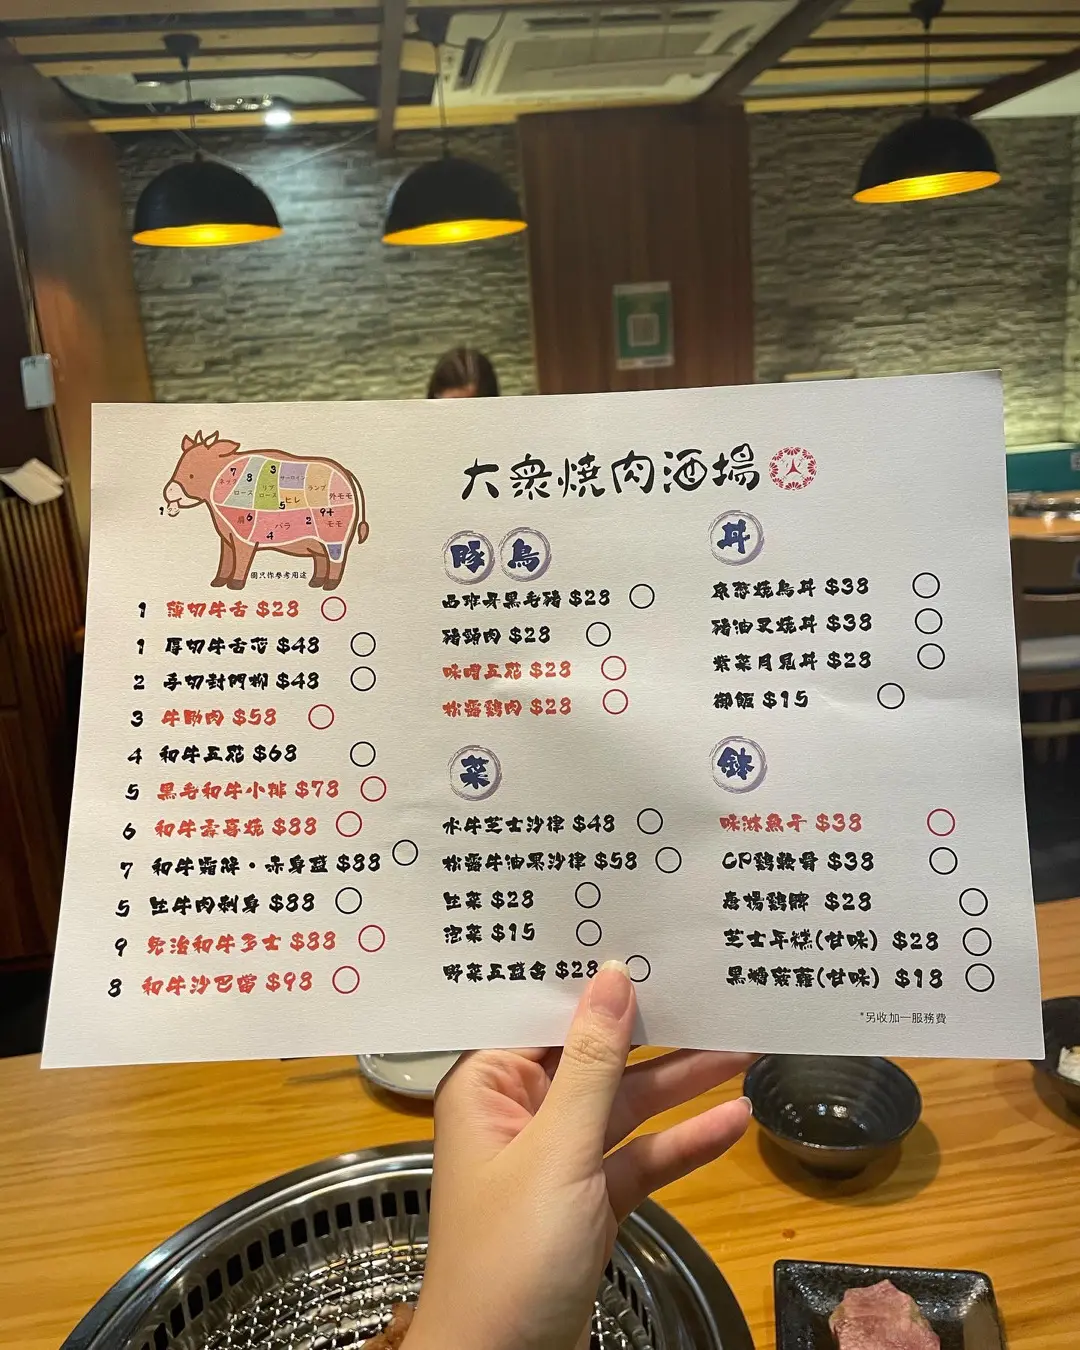 大衆燒肉酒場
7
8
3
ネック
ロース
リブ
ロース
サーロイン
ランプ
外モモ
5
ヒレ
肩
6
バラ
4
2
9+
モモ
1
圖只作參考用途
1 薄切牛舌 $28
1 厚切牛舌芯 $48
2 手切封門柳 $48
3 牛肋肉 $58
4 和牛五花 $68
5 黑毛和牛小排 $78
6 和牛壽喜燒 $88
7 和牛霜降・赤身盛 $88
5 生牛肉刺身 $88
9 免治和牛多士 $88
8 和牛沙巴當 $98
豚 鳥
西班牙黑毛豬 $28
豬頸肉 $28
味噌五花 $28
松露雞肉 $28
菜
水牛芝士沙律 $48
松露牛油果沙律 $58
生菜 $28
泡菜 $15
野菜五盛合 $28
丼
京蔥燒鳥丼 $38
豬油叉燒丼 $38
紫菜月見丼 $28
御飯 $15
鉢
味淋魚干 $38
CP雞軟骨 $38
唐揚雞髀 $28
芝士年糕(甘味) $28
黑糖菠蘿(甘味) $18
*另收加一服務費